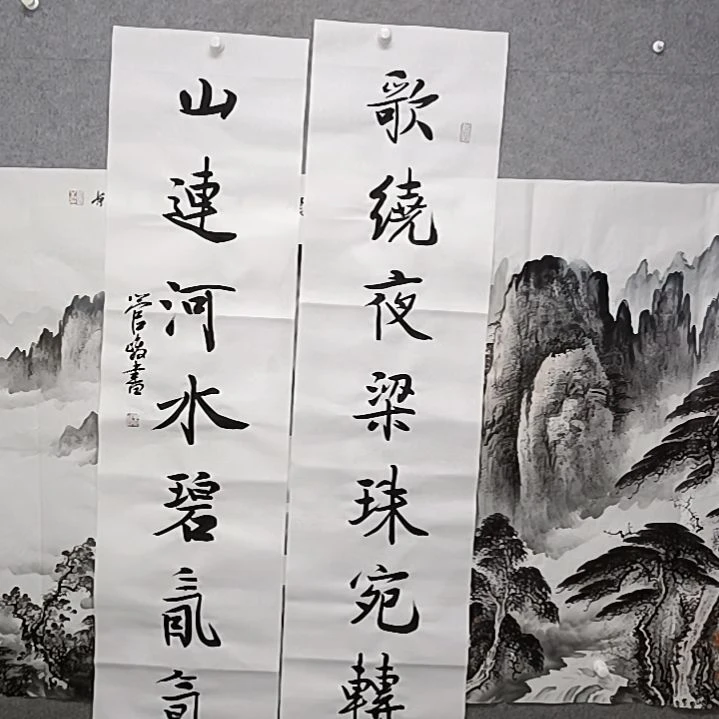 歌繞夜梁珠宛轉
山連河水碧氤
管峻書